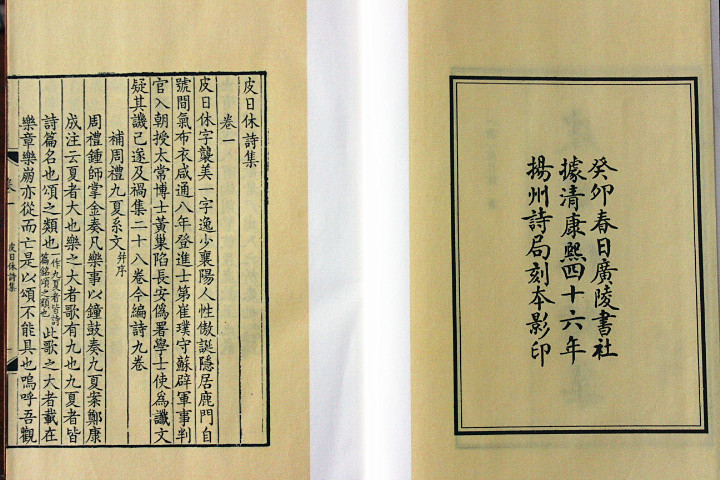 癸卯春日廣陵書社
據清康熙四十六年
揚州詩局刻本影印
皮日休詩集
卷一
皮日休字襲美一字逸少襄陽人性傲誕隱居鹿門自
號間氣布衣咸通八年登進士第崔璞守蘇辟軍事判
官入朝授太常博士黃巢陷長安偽署學士使為讖文
疑其譏己遂及禍集二十八卷今編詩九卷
補周禮九夏系文并序
周禮鍾師掌金奏凡樂事以鐘鼓奏九夏案鄭康
成注云夏者大也樂之大者歌有九也九夏者皆
詩篇名也頌之類也一作九夏者皆詩篇銘頌之類也此歌之大者載在
樂章樂崩亦從而亡是以頌不能具也嗚呼吾觀
卷一
皮日休詩集
一